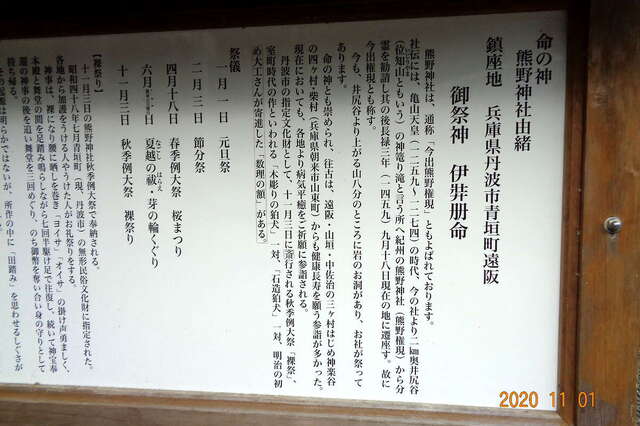 命の神
熊野神社由緒
鎮座地　兵庫県丹波市青垣町遠阪
御祭神　伊弉册命
熊野神社は、通称「今出熊野権現」ともよばれております。
社伝には、亀山天皇（一二五九~一二七四）の時代、今の社より二㎞奥井尻谷
（位知山ともいう）の神篭り滝と言う所へ紀州の熊野神社（熊野権現）から分
霊を勧請し其の後長禄三年（一四五九）九月十八日現在の地に遷座す。故に
今出権現とも称す。
今も、井尻谷より上がる山八分のところに岩のお洞があり、お社が祭って
あります。
命の神とも崇められ、往古は、遠阪・山垣・中佐治の三ヶ村はじめ神楽谷
の四ヶ村・柴村（兵庫県朝来市山東町）からも健康長寿を願う参詣が多かった。
現在においても、各地より病気平癒をご祈願に参詣される。
丹波市の指定文化財として、十一月三日に斎行される秋季例大祭「裸祭、
室町時代の作といわれる「木彫りの狛犬」一対、「石造狛犬」一対、明治の初
め大工さんが寄進した「数理の額」がある。
祭儀
一月一日　元旦祭
二月三日　節分祭
四月十八日　春季例大祭　桜まつり
夏越の祓・芽の輪くぐり
なごし　はらえ
十一月三日　秋季例大祭　裸祭り
【裸祭り】
十一月三日の熊野神社秋季例大祭で奉納される。
昭和四十八年七月青垣町（現、丹波市）の無形民俗文化財に指定された。
各地から加護をうける人やうけた人がお礼祭りをする。
神事は、裸になり腰に晒しを巻き「ヨイサ」「オイサ」の掛け声勇ましく、
本殿と舞堂の間を足踏み鳴らしながら七回半駆け足で往復し、続いて神宝奉
還の神事の後を追い舞堂を三回めぐり、のち御幣を奪い合い身の守りとして
持ち帰る。
その起源は明らかではないが、所作の中に「田踏み」を思わせるしぐさが
2020 11 01